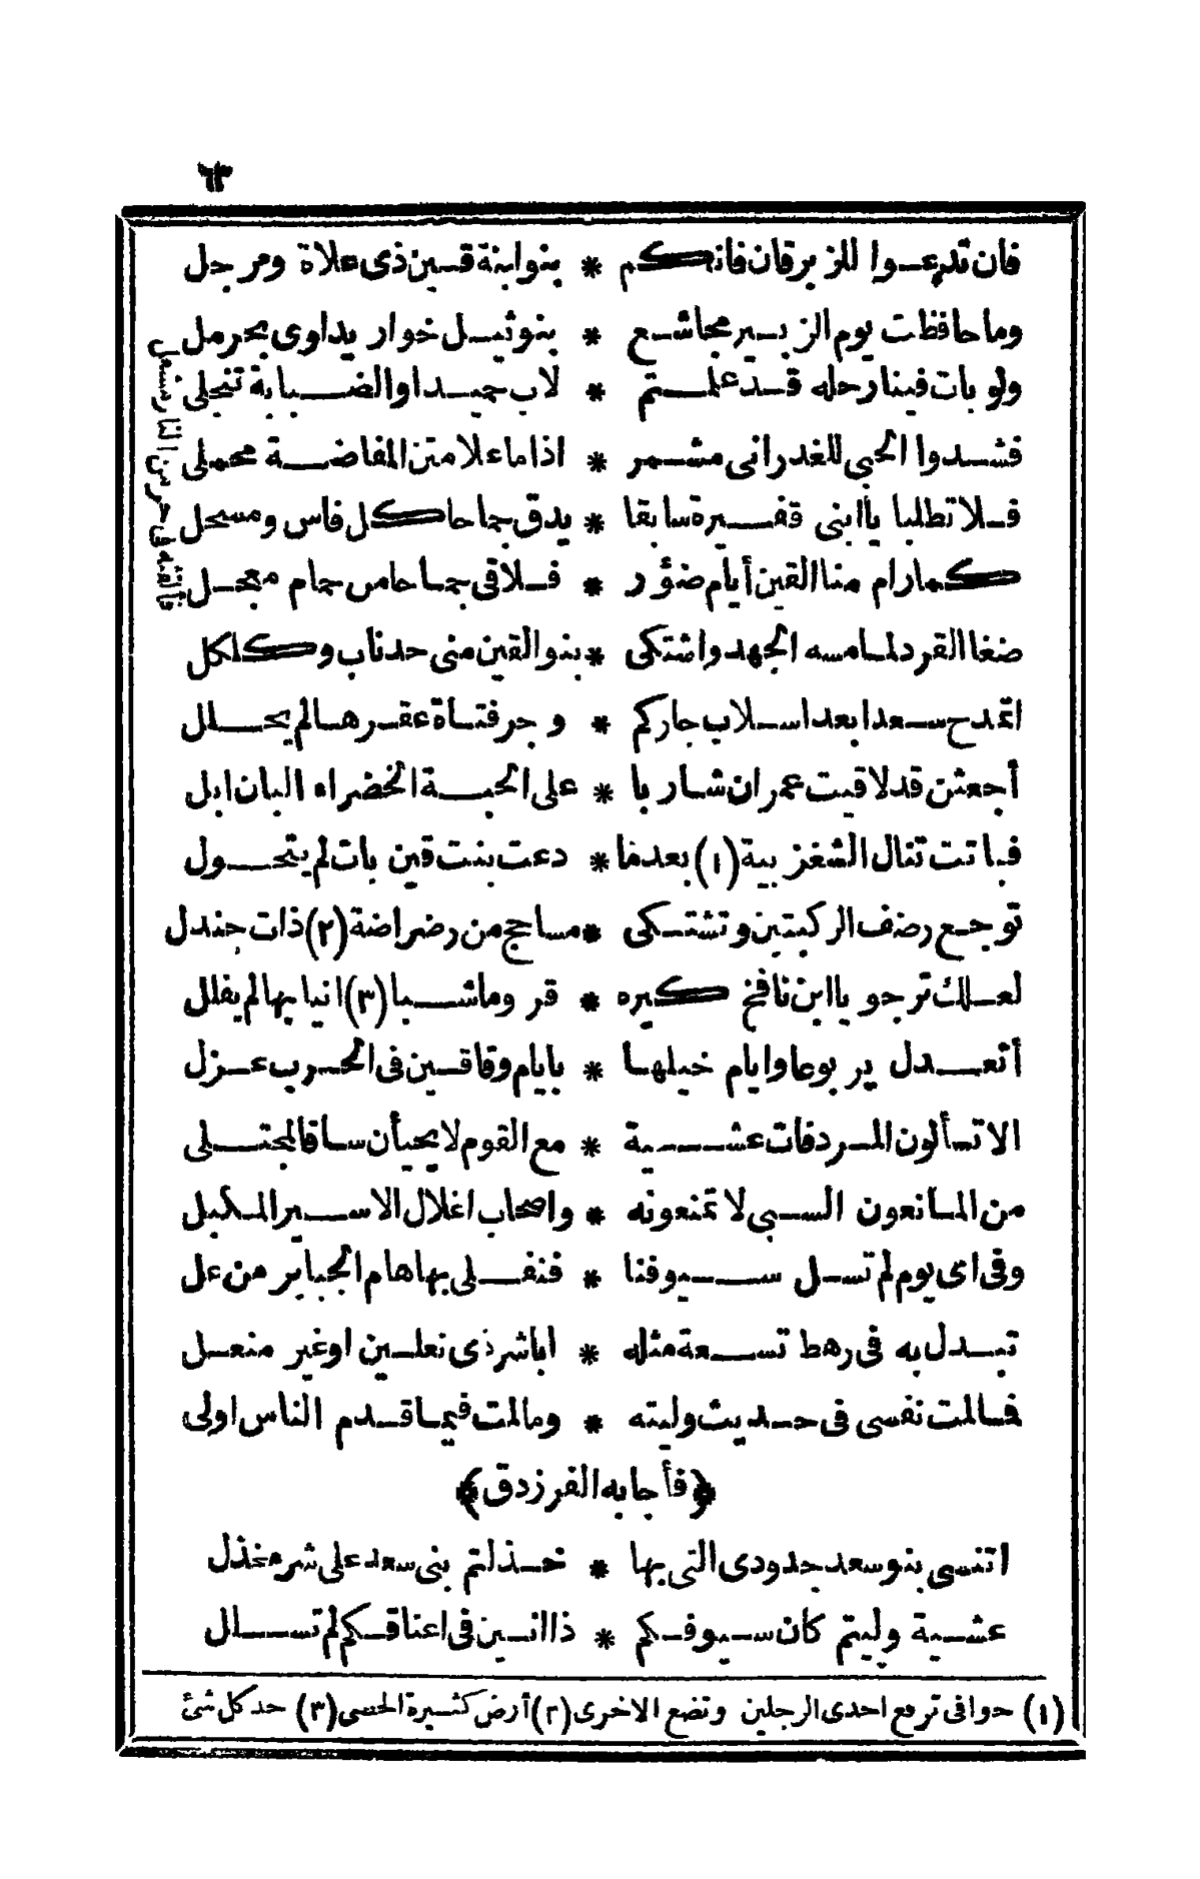 ٦٣
فان تدعوا للزبرقان فانكم * بنو ابنة قين ذى علاة ومرجل
وما حافظت يوم الزبير مجاشع * بنو ثيل خوار يداوى بحرمل
ولو بات فينا رحله قد علمتم * لاب حميدا والضبابة تنجلى
فشدوا الحبى للغدر انى مشمر * اذا ما علا متن المفاضة محملى
فلا تطلبا يا ابنى قفيرة سابقا * يدق جماحا كل فاس ومسحل
كما رام منا القين أيام ضؤر * فلاقى جماحا من حمام معجل
ضغا القرد لما مسه الجهد واشتكى * بنو القين منى حد ناب وكلكل
اتمدح سعدا بعد اسلاب جاركم * وجر فتاة عقرها لم يحلل
أجعثن قد لاقيت عمران شاربا * على الحبة الخضراء البان ايل
فباتت تنال الشغزبية (١) بعدما * دعت بنت قين بات لم يتحول
توجع رضف الركبتين وتشتكى * مساحج من رضراضة (٢) ذات جندل
لعلك ترجو يا ابن نافخ كيره * قروما شبا (٣) انيابها لم يفلل
أتعدل يربوعا وايام خيلها * بايام وقافين فى الحرب عزل
الا تسألون المردفات عشية * مع القوم لا يخبأن ساقا لمجتلى
من المانعون السبى لا تمنعونه * واصحاب اغلال الاسير المكبل
وفى اى يوم لم تسل سيوفنا * فنفلى بها هام الجبابر من عل
تبدل به فى رهط تسعة مثله * ابا شر ذى نعلين او غير منعل
فما لمت نفسى فى حديث وليته * وما لمت فيما قدم الناس اولى
﴿فأجابه الفرزدق﴾
اتنسى بنو سعد جدودى التى بها * خذلتم بنى سعد على شر مخذل
عشية وليتم كان سيوفكم * ذاانين فى اعناقكم لم تسلل
(١) حوافى ترفع احدى الرجلين وتضع الاخرى (٢) أرض كثيرة الحصى (٣) حد كل شئ